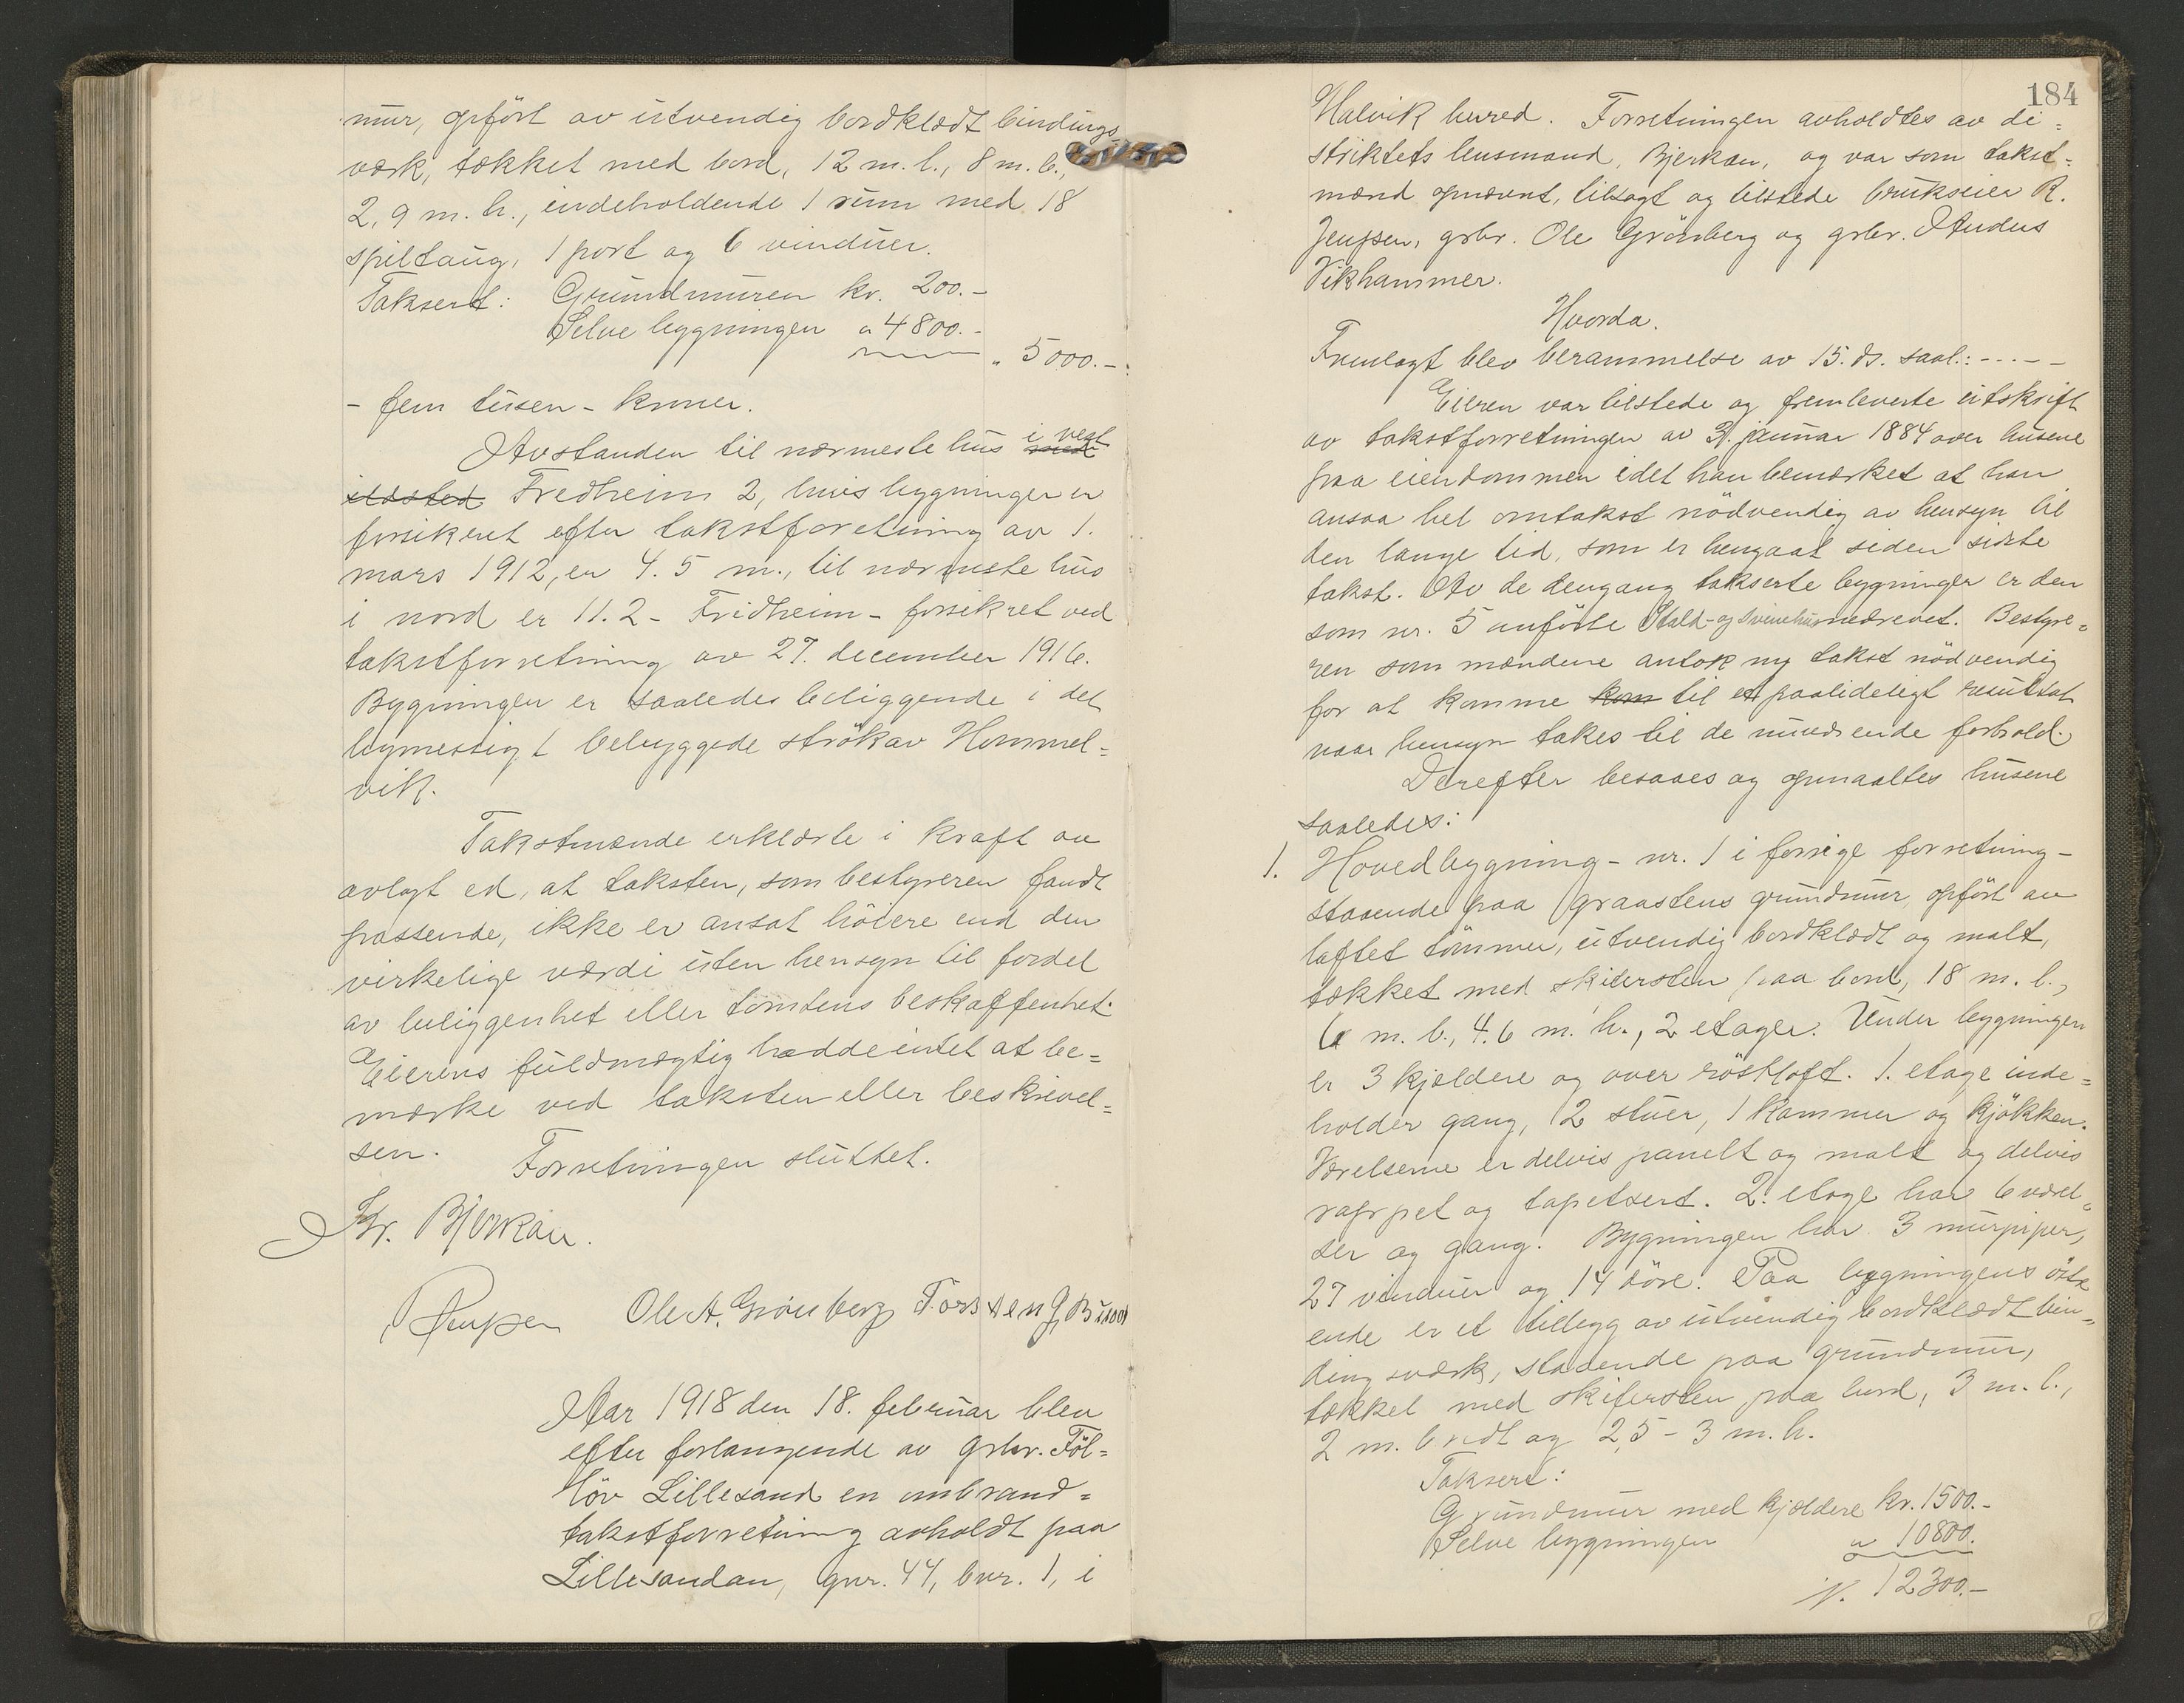 mur, opført av utvendig bordklædt bindings
værk, tækket med bord, 12 m. l., 8 m. b.,
2,9 m. h., indeholdende 1 rum med 18
spiltaug, 1 port og 6 vinduer.
Taksert: Grundmuren kr. 200.-
Selve bygningen " 4800.-
" 5000.-
- fem tusen - kroner.
Avstanden til nærmeste hus i vest
Fredheim 2, hvis bygninger er
forsikret efter takstforretning av 1.
mars 1912, er 4.5 m., til nærmeste hus
i nord er 11.2 - Fridheim - forsikret ved
takstforretning av 27. december 1916.
Bygningen er saaledes beliggende i det
bymessigt bebyggede strøk av Hommel=
vik.
Takstmænde erklærte i kraft av
avlagt ed, at taksten, som bestyreren fandt
passende, ikke er ansat høiere end den
virkelige værdi uten hensyn til fordel
av beliggenhet eller tomtens beskaffenhet.
Eierens fuldmægtig hadde intet at be=
mærke ved taksten eller beskrivel=
sen.
Forretningen sluttet.
Kr. Bjerkan.
Jenssen Ole A. Grønberg Torsten J. Bruun
Aar 1918 den 18. februar blev
efter forlangende av grbr. Föl=
löv Lillesand en ombrand=
takstforretning avholdt paa
Lillesandan, gnr. 44, bnr. 1, i
184
Malvik herred. Forretningen avholdtes av di=
striktets lensmand, Bjerkan, og var som takst=
mænd opnævnt, tilsagt og tilstede brukseier R.
Jenssen, grbr. Ole Grönberg og grbr. Anders
Vikhammer.
Hvorda.
Fremlagt blev berammelse av 15. ds. saal.: - - - -
Eieren var tilstede og fremleverte utskrift
av takstforretningen av 31. januar 1884 over husene
paa eiendommen idet han bemærket at han
ansaa hel omtakst nödvendig av hensyn til
den lange tid, som er hengaat siden sidste
takst. Av de dengang takserte bygninger er den
som nr. 5 anförte Stald- og Svinehus nedrevet. Bestyre=
ren som mændene antok ny takst nödvendig
for at komme kom til et paalideligt resultat
naar hensyn takes til de nuværende forhold.
Derefter besaaes og opmaaltes husene
saaledes:
1. Hovedbygning - nr. 1 i forrige forretning -
staaende paa graastens grundmur, opfört av
laftet tömmer, utvendig bordklædt og malt,
tækket med skifersten paa bord, 18 m. l.,
6 m. b., 4.6 m. h., 2 etager. Under bygningen
er 3 kjeldere og over röstloft. 1. etage inde=
holder gang, 2 stuer, 1 kammer og kjökken.
Værelserne er delvis panelt og malt og delvis
rappet og tapetsert. 2. etage har 6 værel=
ser og gang. Bygningen har 3 murpiper,
27 vinduer og 14 döre. Paa bygningens östre
ende er et tillegg av utvendig bordklædt bin=
dingsværk, staaende paa grundmur,
tækket med skifersten paa bord, 3 m. l.,
2 m. bredt og 2,5 - 3 m. h.
Taksert:
Grundmur med kjeldere kr. 1500.-
Selve bygningen " 10800.
12300.-